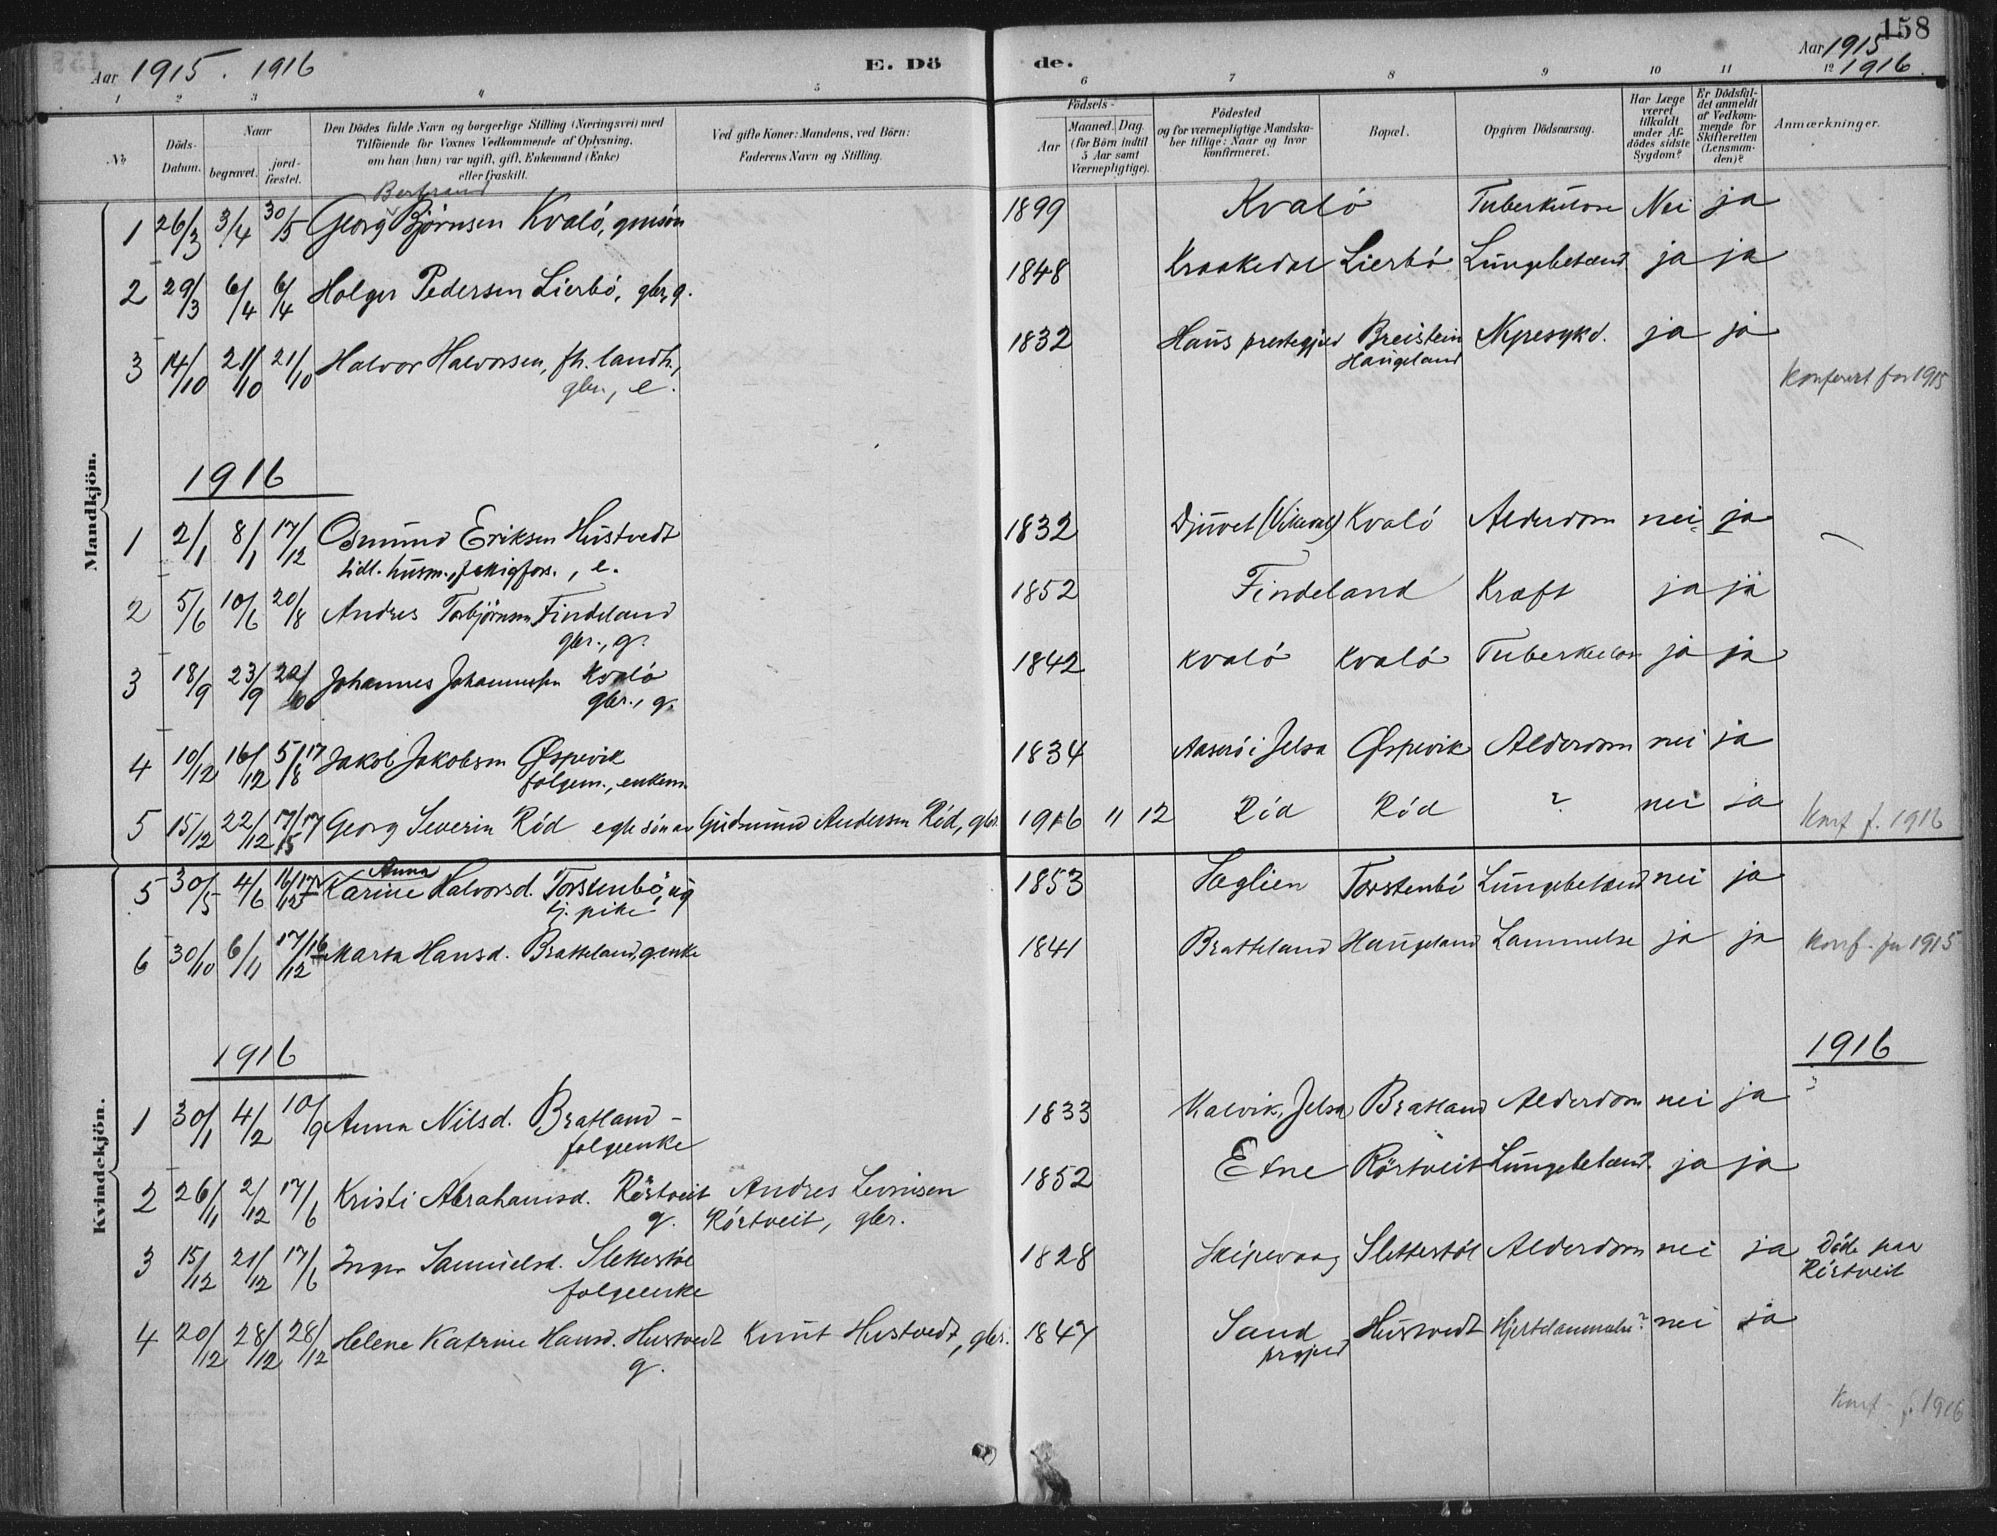 158
Aar 1915. 1916
E. Dö de.
Aar 1915
1916
1 2 3 4 5 6 7 8 9 10 11 12
No
Döds-Datum.
Naar
begravet.
jord-fæstet.
Den Dödes fulde Navn og borgerlige Stilling (Næringsvei) med
Tilföiende for Voxnes Vedkommende af Oplysning,
om han (hun) var ugift, gift, Enkemand (Enke)
eller fraskilt.
Ved gifte Koner: Mandens, ved Börn:
Faderens Navn og Stilling.
Födsels-
Aar
Maaned. Dag.
(for Börn indtil
5 Aar samt
Værnepligtige).
Födested
og for værnepligtige Mandska-
ber tillige: Naar og hvor
konfirmeret.
Bopæl.
Opgiven Dödsaarsag.
Har Læge
været
tilkaldt
under Af-
dödes sidste
Sygdom?
Er Dödsfal-
det anmeldt
af Vedkom-
mende for
Skifteretten
(Lensman-
den)?
Anmærkninger.
Mandkjön.
Bertrand
1 26/3 3/4 30/5 Georg Björnsen Kvaló, gmsón 1899 Kvaló Tuberkulose Nei ja
2 29/3 6/4 6/4 Holger Pedersen Lierbó, gbr, g. 1848 Kraakedal Lierbó Lungebetænd. ja ja
3 14/10 21/10 21/10 Halvor Halvorsen, fh. landh., 1832 Haus prestegjeld Breistein Nyresykd. ja ja
gbr., e. Haugeland
Konferert for 1915
1916
1 2/1 8/1 17/12 Osmund Eriksen Hustvedt 1832 Djuvet (Vikedal) Kvaló Alderdom nei ja
tidl. husm., e.
2 5/6 10/6 20/8 Andres Torbjörnsen Findeland 1852 Findeland Kræft ja ja
gbr., g.
3 18/9 23/9 Johannes Johannessen Kvaló 1842 Kvaló Kvaló Tuberkulose ja ja
gbr., g.
4 10/12 16/12 5/8 17 Jakob Jakobsen Øspevik 1834 i Jelsa Øspevik Alderdom nei ja
folgem., enkem.
5 15/12 22/12 17/5 17 Georg Severin Ród egte són av Gudmund Andersen Ród, gbr. 1916 11 12 Ród Ród ? nei ja Konf f. 1916
Kvindekjön.
Anna
5 30/5 4/6 Karine Halvorsd. Torstenbó, ug 1853 Torstenbó Lungebetænd nei ja
tj. pike
6 30/10 6/11 17/12 16 Marta Hansd. Bratteland, genke 1841 Bratteland Haugeland Lammelse ja ja Konf. for 1915
1916
1916
1 30/1 4/2 10/9 Anna Nilsd. Bratland - 1833 Kalvik, Jelsa Bratland Alderdom nei ja
folgeenke
2 26/11 2/12 17/6 Kristi Abrahamsd. Rörtveit Andres 1852 Etne Rörtveit Lungebetænd. ja ja
g. Rörtveit, gbr.
3 15/12 21/12 17/6 Inger Samuelsd. Slettestól 1828 Skipevaag Slettestól Alderdom nei ja Döde paa
folgeenke Rörtveit
4 20/12 28/12 28/12 Helene Katrine Hansd. Hustvedt Knut Hustvedt, gbr. 1847 Sand Hustvedt Hjertelammelse? nei ja
g. prgjeld
Konf. f. 1916